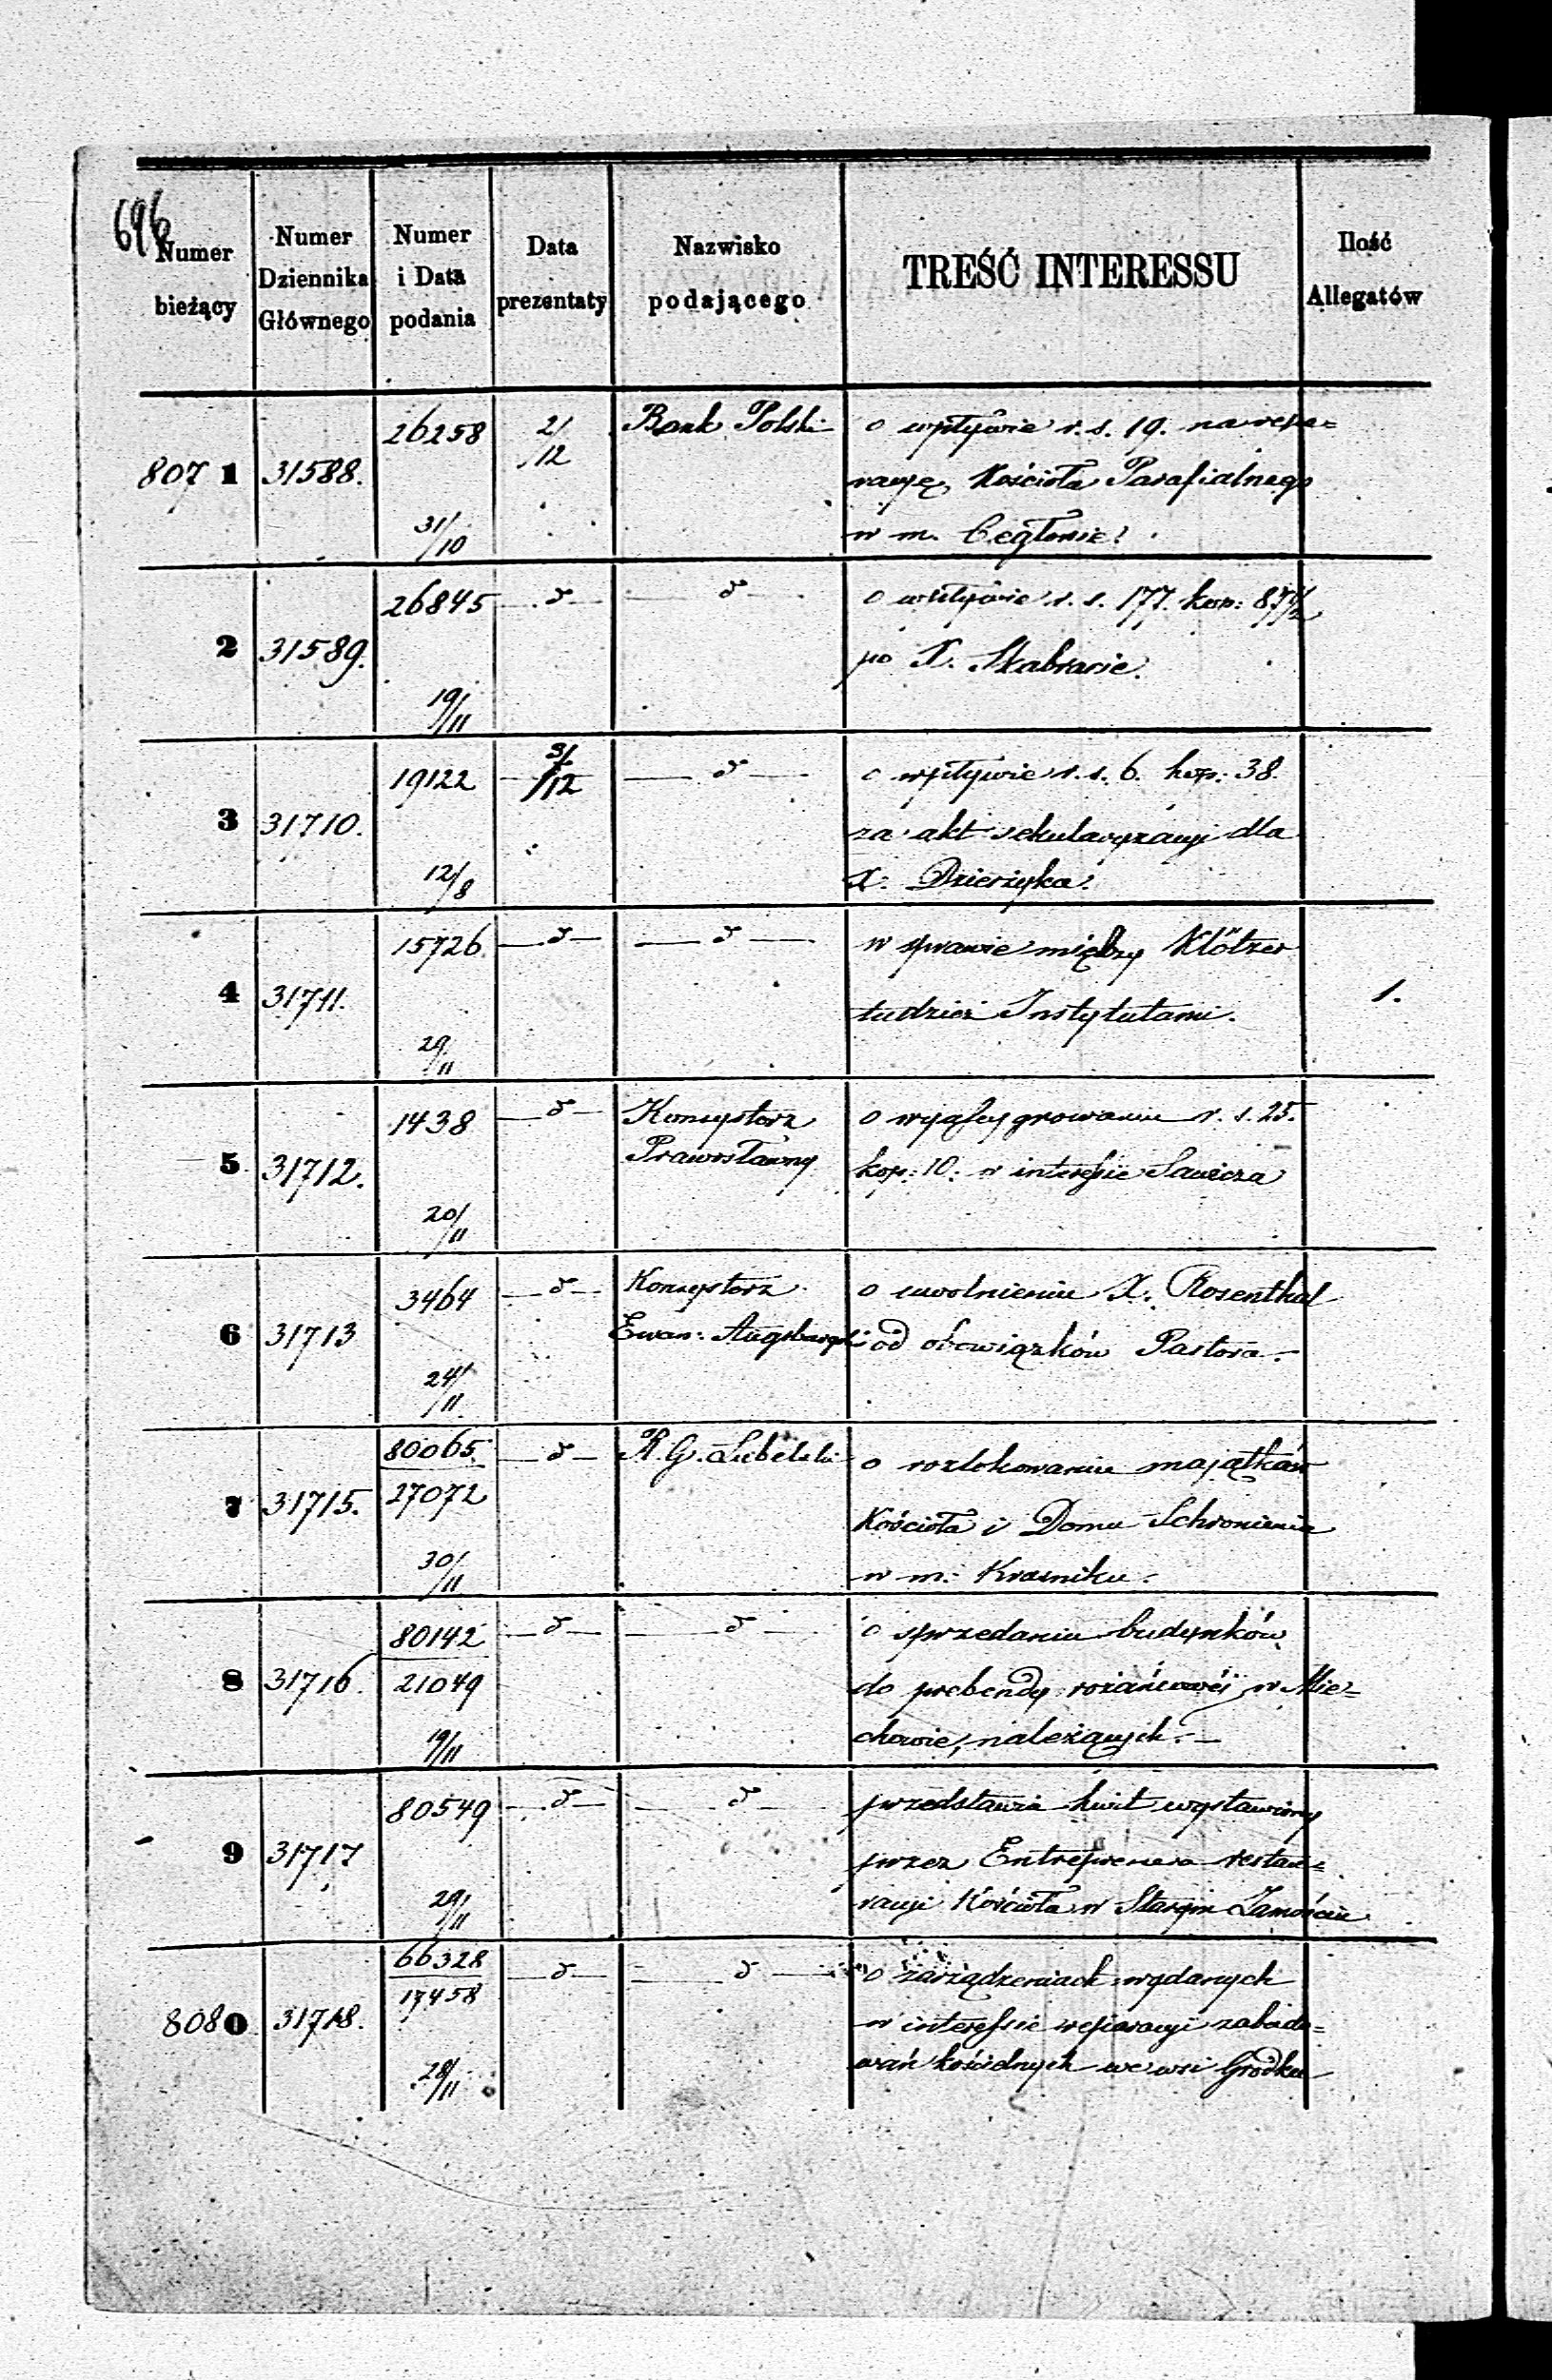 696
Numer bieżący
Numer Dziennika Głównego
Numer i Data podania
Data prezentaty
Nazwisko podającego
TREŚĆ INTERESSU
Ilość Allegatów
807 1 31588. 26258 31/10 2/12 Bank Polski o wpływie r. s. 19. na repa=
racyę Kościoła Parafialnego
w m. Cegłowie.
2 31589. 26845 19/11 d d o wpływie r. s. 177. kop: 87 1/2
po X. Skabranie.
3 31710. 19122 12/8 3/12 d o wpływie r. s. 6. kop: 38.
za akt sekularyzacyi dla
X. Dzierżyka.
4 31711. 15726. 29/11 d d w sprawie między Klötzer
tudzież Instytutami. 1.
5 31712. 1438 20/11 d Konsystorz
Prawosławny
o wyasygnowaniu r. s. 25.
kop: 10. w interesie Sawicza
6 31713 3464 24/11 d Konsystorz
Ewan: Augsburgski
o uwolnieniu X. Rosenthal
od obowiązków Pastora.
7 31715. 80065 27072 30/11 d R. G. Lubelski o rozlokowaniu majątków
Kościoła i Domu Schronienia
w m. Krasniku.
8 31716. 80142 21049 19/11 d d o sprzedaniu budynków
do prebendy rożańcowéj w Mie=
chowie, należących.
9 31717 80549 29/11 d d przedstawia kwit wystawiony
przez Entreprenera restau=
racyi Kościoła w Starym Zamościu
808 0 31718. 66328 17458 28/11 d d o zarządzeniach wydanych
w interessie reparacyi zabudo=
wań kościelnych we wsi Grodku